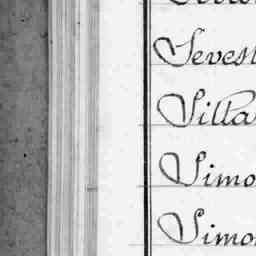 Sevest
Silla
Simo
Simo